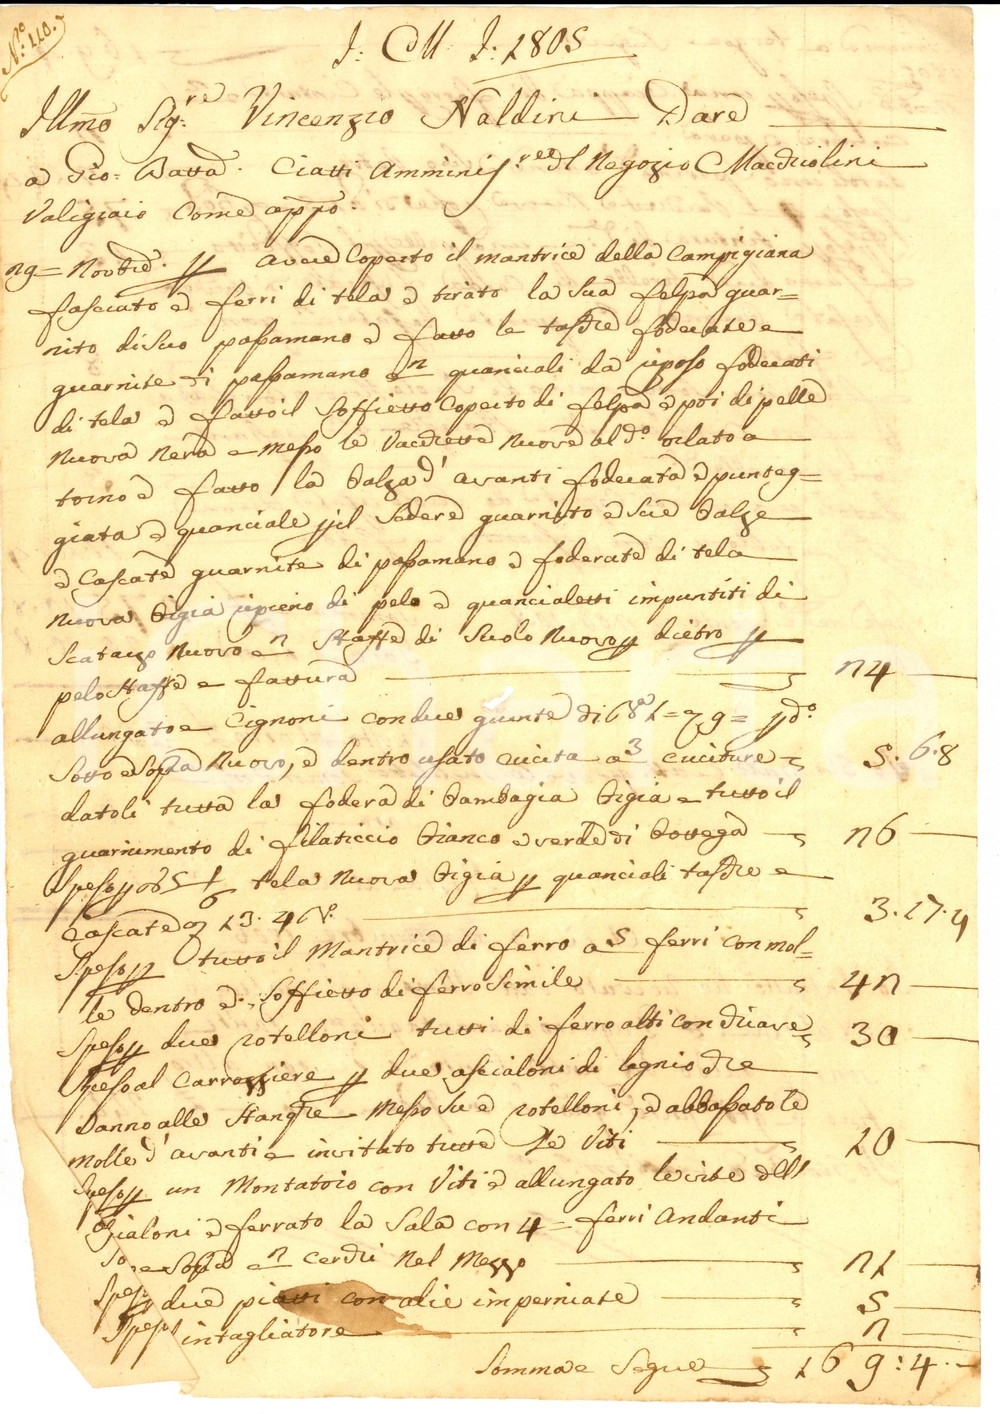 N.ro 110.
J: M: J: 1805
Illmo Sig.re Vincenzio Naldini Dare
a Gio: Batta. Ciatti Amminis.re del Negozio Macchiolini
Valigiaio Come app.o
Novbre. p avere Coperto il mantice della Campigiana
fasciato e ferri di tela e tirato la sua felpa guar=
nito di suo passamano e fatto le tasche foderate e
guarnite di passamano e 2 guanciali da riposo foderati
di tela e fatto il Soffietto Coperto di felpa e poi di pelle
nuova nera e messo le Vacchette nuove al do. orlato a
torno e fatto la balza d'avanti foderata e punteg=
giata e guanciale p il Sedere guarnito e sue balze
e Cascate guarnite di passamano e foderate di tela
nuova bigia ripieno di pelo e guancialetti impuntiti di
Scatarzo nuovo e 2 Staffe di Suolo nuovo p dietro p
pelo Staffe e fattura 24
allungato e Cignoni con due giunte di p do.
Sotto e Sopra nuovo, e dentro usato cucita a 3 cuciture 5. 6.8
datoli tutta la fodera di bambagia bigia e tutto il
guarnimento di filaticcio bianco e verde di bottega 26
Speso p tela nuova bigia p guanciali tasche e
Cascate 13. 4 3.17.4
Speso p tutto il Mantice di ferro a 5 ferri con mol=
le dentro e Soffietto di ferro Simile 42
Speso p due rotelloni tutti di ferro alti con chiave 30
Speso al Carrozziere p due ascialoni di legnio che
Vanno alle Stanghe messo su e rotelloni, e abbassato le
molle d'avanti e invitato tutte Le Viti 20
Speso p un Montatoio con Viti e allungato le vite dell
ascialoni e ferrato la Sala con 4 = ferri andanti
e Sopra e 2 cerchi nel mezzo 21
Speso p due piatti con alie imperniate 5
Speso intagliatore 2
Somma e Segue 169:4.